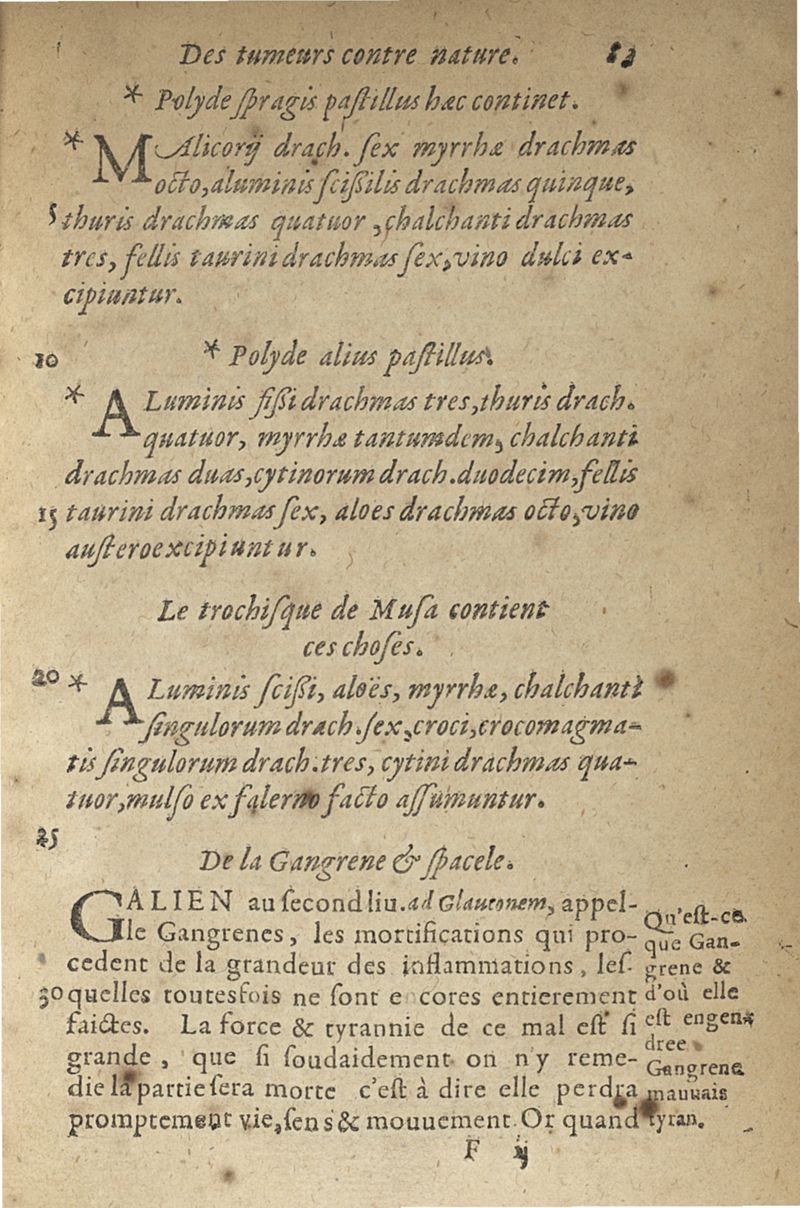 Des tumeurs contre nature. 83
* Polyde ſpragis paſtillus hæc continet.
* MAlicorij drach. ſex myrrhæ drachmas
octo, aluminis ſciſsilis drachmas quinque,
5 thuris drachmas quatuor, chalchanti drachmas
tres, fellis taurini drachmas ſex, vino dulci ex-
cipiuntur.
10 * Polyde alius paſtillus.
* ALuminis fiſsi drachmas tres, thuris drach.
quatuor, myrrhæ tantumdem, chalchanti
drachmas duas, cytinorum drach. duodecim, fellis
15 taurini drachmas ſex, aloes drachmas octo, vino
auſtero excipiuntur.
Le trochiſque de Muſa contient
ces choſes.
20 * ALuminis ſciſsi, aloës, myrrhæ, chalchanti
ſingulorum drach. ſex, croci, crocomagma-
tis ſingulorum drach. tres, cytini drachmas qua-
tuor, mulſo ex falerno facto aſſumuntur.
25
De la Gangrene & ſpacele.
GALIEN au ſecond liu. ad Glauconem, appel-
le Gangrenes, les mortifications qui pro-
cedent de la grandeur des inflammations, leſ-
30 quelles toutesfois ne ſont e cores entierement
faictes. La force & tyrannie de ce mal eſt ſi
grande, que ſi ſoudaidement on n'y reme-
die la partie ſera morte c'eſt à dire elle perdra
promptement vie, ſens & mouuement. Or quand
Qu'eſt-ce
que Gan-
grene &
d'où elle
eſt engen-
dree
Gangrene
mauuais
tyran.
F ij